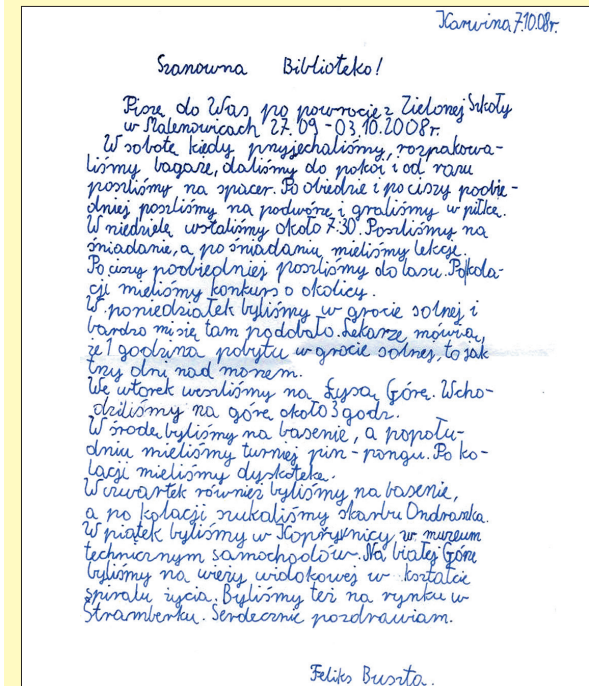 Karwina, 7.10.08r.
Szanowna Biblioteko!
Piszę do Was po powrocie z Zielonej Szkoły
w Malenowicach 27.09 - 03.10.2008r.
W sobotę kiedy przyjechaliśmy, rozpakowa-
liśmy bagaże, daliśmy do pokoi i od razu
poszliśmy na spacer. Po obiedzie i po ciszy poobie-
dniej poszliśmy na podwórze i graliśmy w piłkę.
W niedzielę wstaliśmy około 7.30. Poszliśmy na
śniadanie, a po śniadaniu mieliśmy lekcje.
Po ciszy poobiedniej poszliśmy do lasu. Po kola-
cji mieliśmy konkurs o okolicy.
W poniedziałek byliśmy w grocie solnej i
bardzo mi się tam podobało. Lekarze mówią,
że 1 godzina pobytu w grocie solnej, to jak
trzy dni nad morzem.
We wtorek weszliśmy na Łysą Górę. Wcho-
dziliśmy na górę około 3 godz.
W środę byliśmy na basenie, a popołu-
dniu mieliśmy turniej pin-pongu. Po ko-
lacji mieliśmy dyskotekę.
W czwartek również byliśmy na basenie,
a po kolacji szukaliśmy skarbu Ondraszka.
W piątek byliśmy w Kopřywnicy w muzeum
technicznym samochodów. Na białej Górze
byliśmy na wieży widokowej w kształcie
spirału życia. Byliśmy też na rynku w
Štramberku. Serdecznie pozdrawiam.
Feliks Buszta.